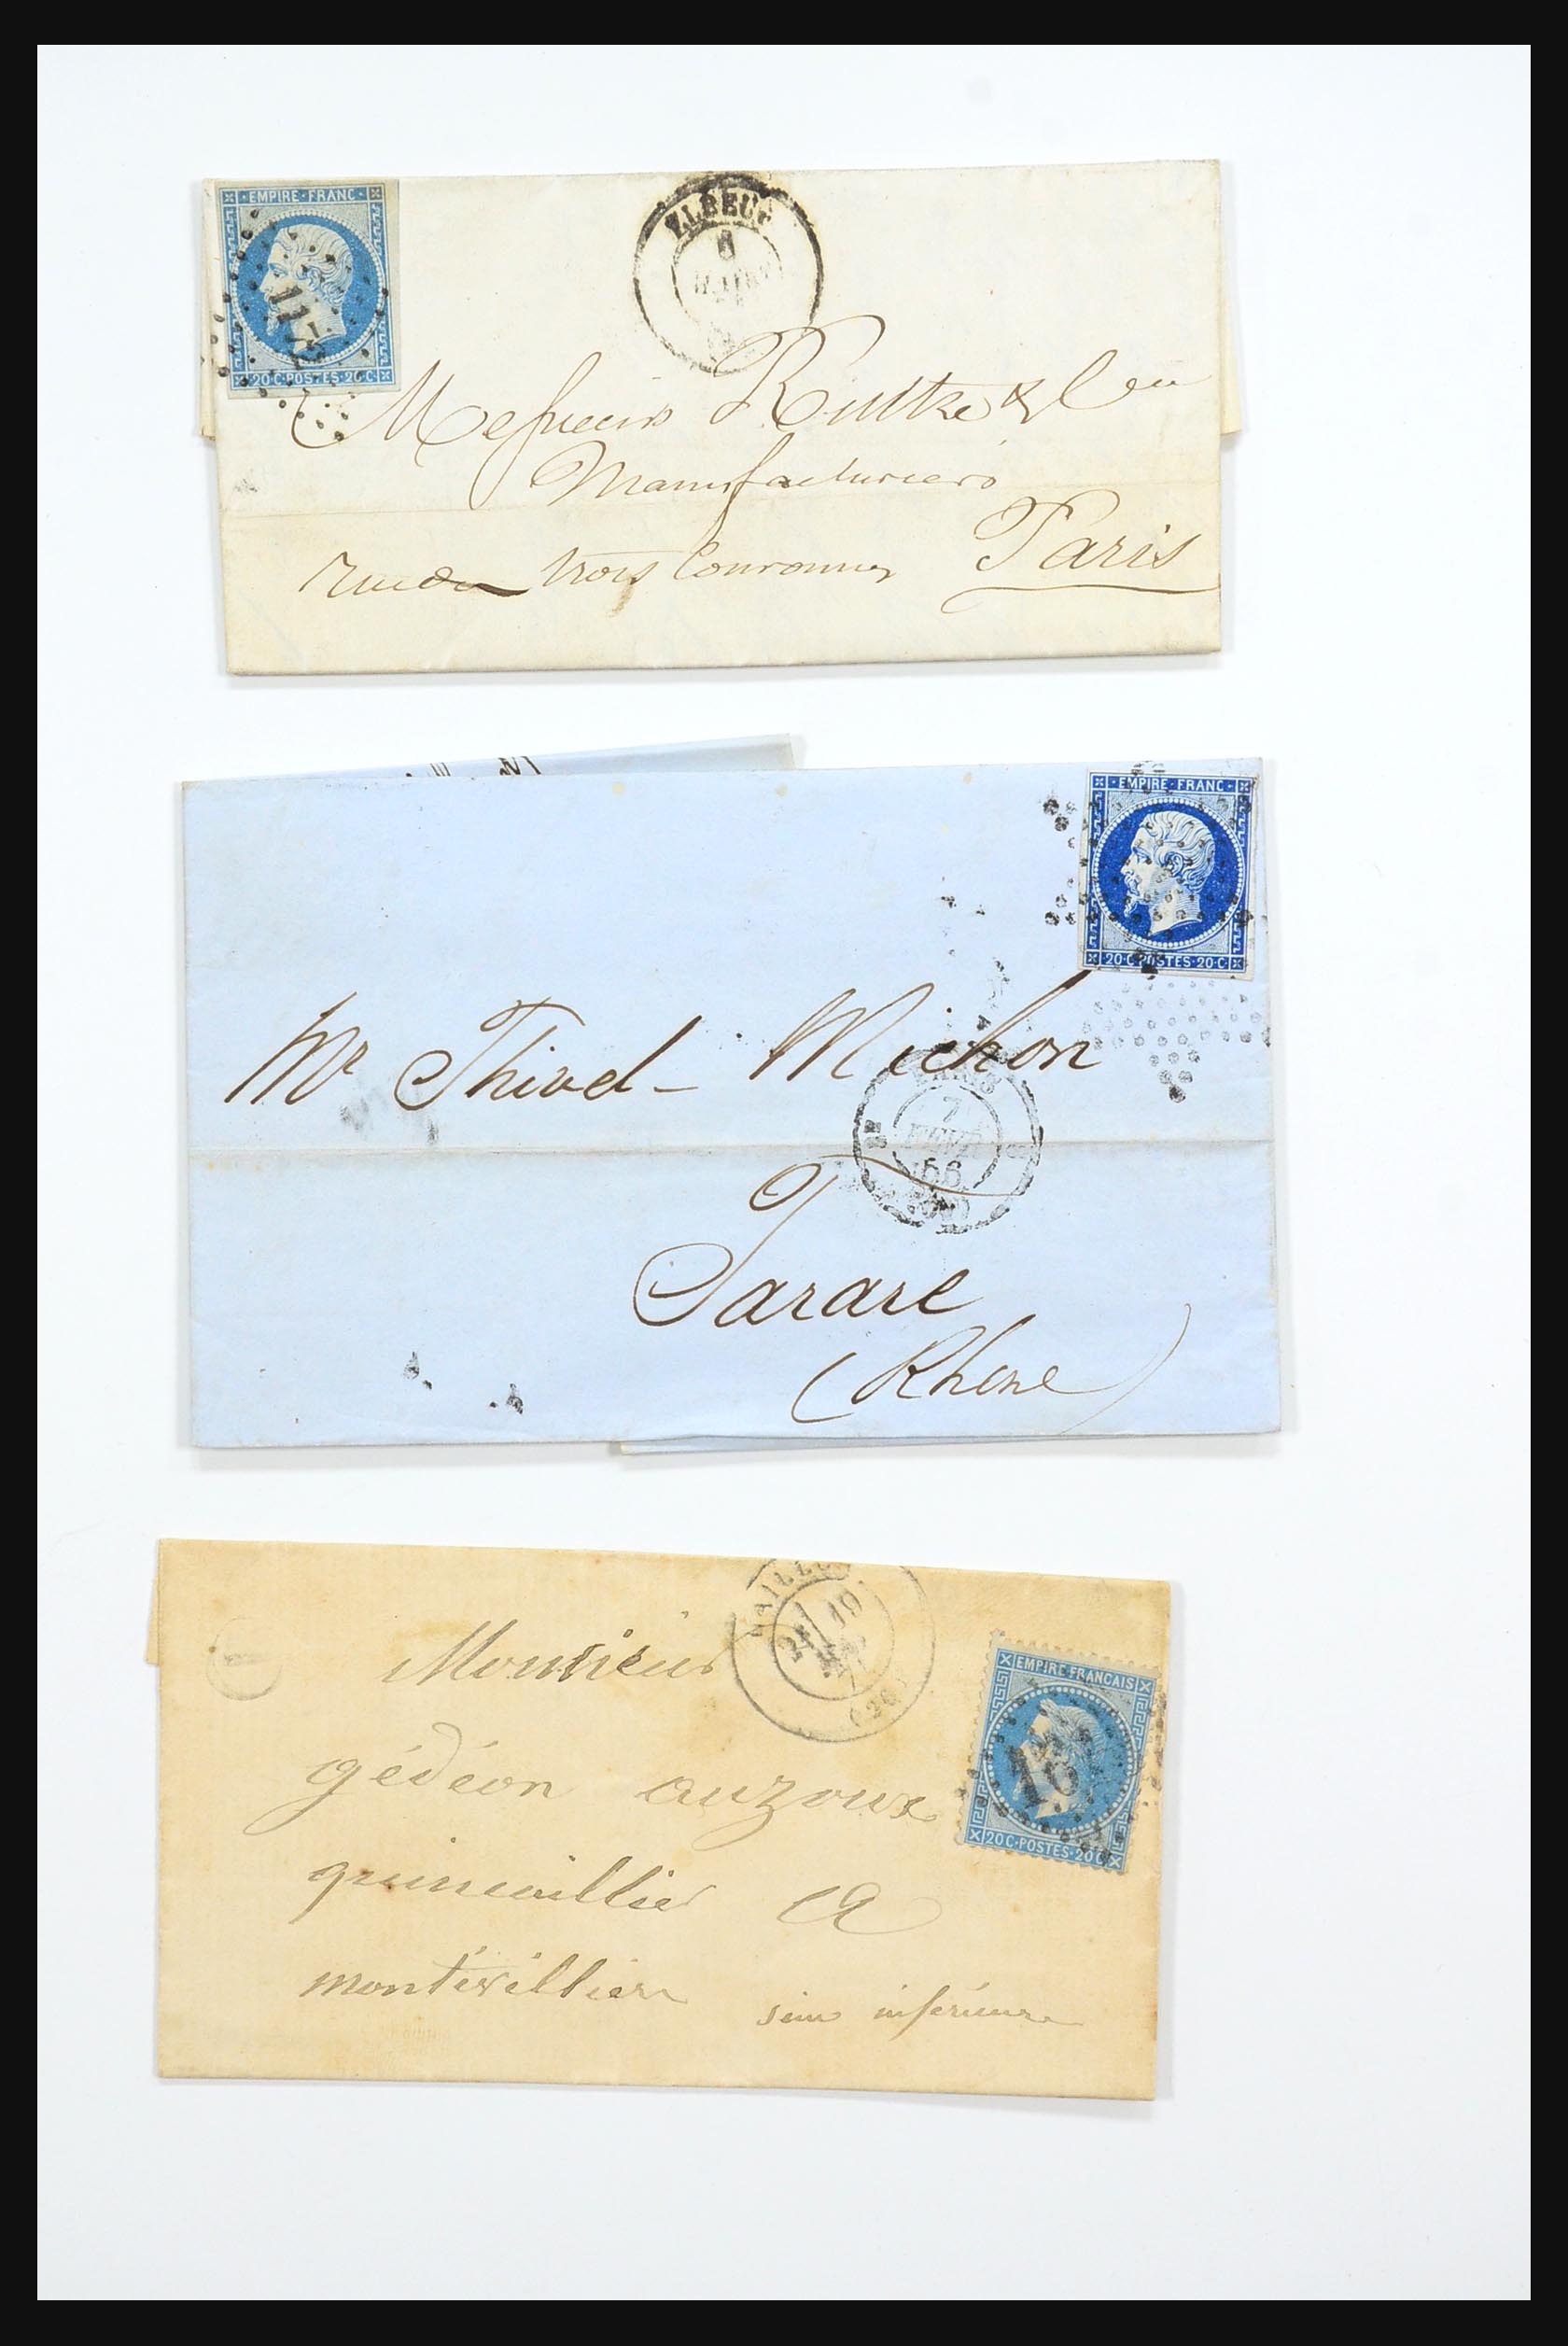 EMPIRE · FRANC ·
20 · C · POSTES · 20 · C
ELBEUF
6
Messieurs
Manufacturiers
rue des trois Couronnes Paris
EMPIRE · FRANC ·
20 · C · POSTES · 20 · C
Mr Thivel - Michon
PARIS
7
FEVR
56
Tarare
(Rhone)
19
(26)
EMPIRE FRANÇAIS
20 C · POSTES · 20 C
16
Monsieur
gédéon auzoux
quincaillier A
montivillier
seine inférieure